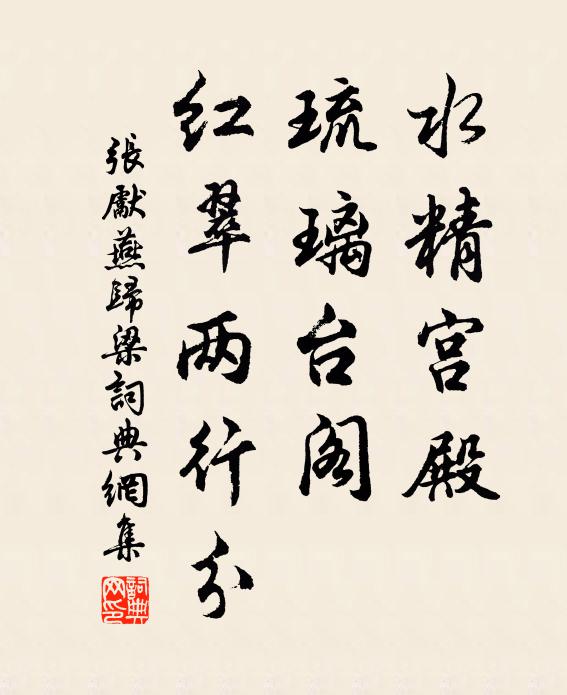 水精宫殿
琉璃台阁
红翠两行分
張獻燕歸梁詞典網集
詞典网印